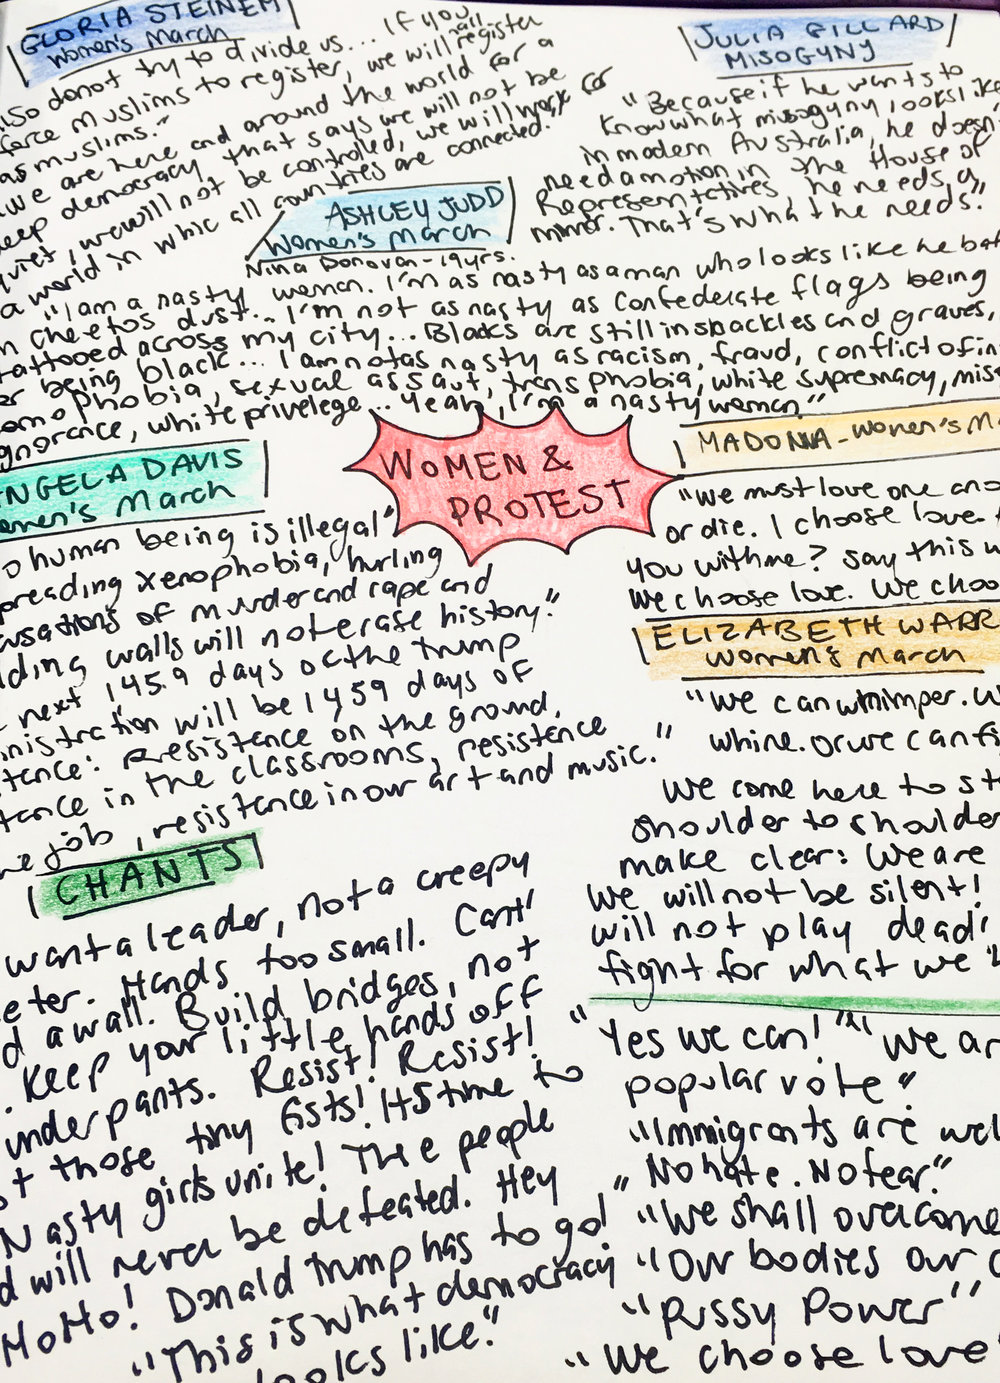 GLORIA STEINEM
Women's March
lso do not try to divide us... If you
force muslims to register, we will all register
as muslims."
we are here and around the world for a
deep democracy that says we will not be
quiet, we will not be controlled, we will work for
a world in whic all countries are connected."
JULIA GILLARD
MISOGYNY
"Because if he wants to
know what misogyny looks like
in modern Australia, he doesn't
need a motion in the House of
Representatives, he needs a
mirror. That's what he needs."
ASHLEY JUDD
Women's March
Nina Donovan-19yrs.
"I am a nasty woman. I'm as nasty as a man who looks like he bat
in cheetos dust... I'm not as nasty as confederate flags being
tattooed across my city... Blacks are still in shackles and graves,
for being black... I am not as nasty as racism, fraud, conflict of in
homophobia, sexual assaut, transphobia, white supremacy, miso
ignorance, white privelege... Yeah, I'm a nasty woman"
WOMEN &
PROTEST
ANGELA DAVIS
omen's March
o human being is illegal"
preading xenophobia, hurling
usations of murder and rape and
lding walls will not erase history."
next 1459 days of the trump
inistration will be 1459 days of
tence: Resistence on the ground,
tence in the classrooms, resistence
he job, resistence in our art and music."
MADONNA - Women's Ma
"We must love one ano
or die. I choose love.
you with me? Say this w
We choose love. We choo
ELIZABETH WARR
Women's March
"We can whimper. W
whine. or we can fi
We come here to st
shoulder to shoulder
make clear: We are
We will not be silent!
will not play dead!
fight for what we
CHANTS
want a leader, not a creepy
eter. Hands too small. Cant'
d a wall. Build bridges, not
. Keep your little hands off
underpants. Resist! Resist!
t those tiny fists! Its time to
Nasty girls unite! The people
d will never be defeated. Hey
HoHo! Donald Trump has to go!
"This is what democracy
looks like."
"Yes we can!" "We ar
popular vote"
"Immigrants are wel
"No hate. No fear."
"We shall overcome
"Our bodies our c
"Pussy Power"
"We choose love"